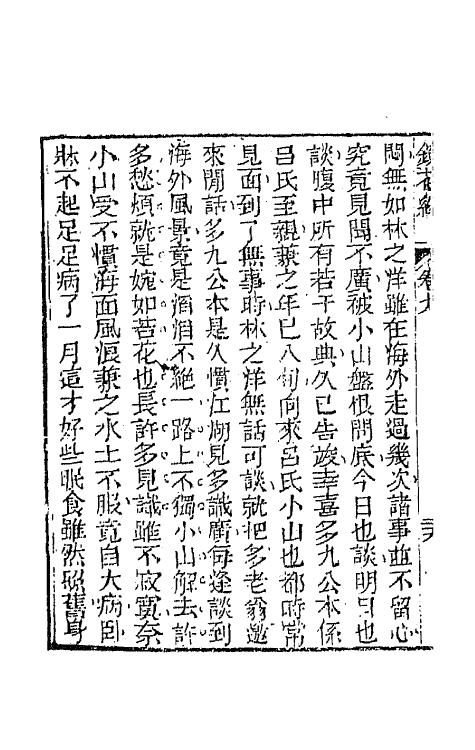 鏡花緣 卷九
悶無如林之洋雖在海外走過幾次諸事並不留心
究竟見聞不廣被小山盤根問底今日也談明日也
談腹中所有若干故典久已告竣幸喜多九公本係
呂氏至親兼之年已八旬向來呂氏小山也都時常
見面到了無事時林之洋無話可談就把多老翁邀
來閒話多九公本是久慣江湖見多識廣每逢談到
海外風景竟是滔滔不絕一路上不獨小山解去許
多愁煩就是婉如若花也長許多見識雖不寂寞奈
小山受不慣海面風浪兼之水土不服竟自大病臥
牀不起足足病了一月這才好些眠食雖然照舊身